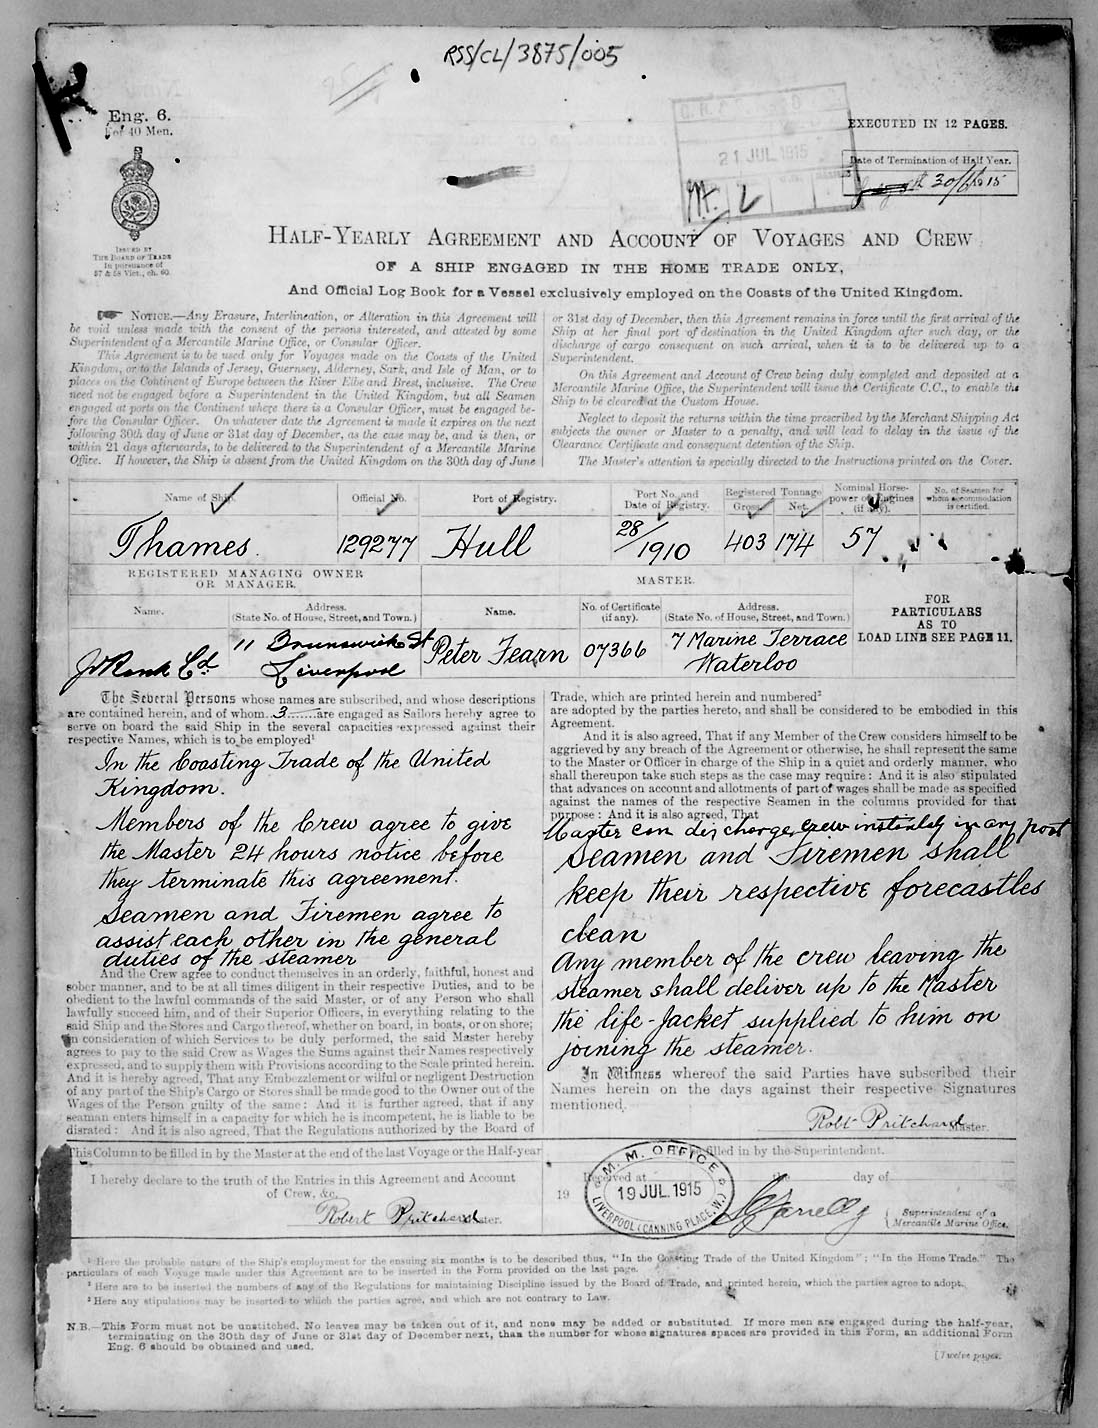 RSS/CL/3875/005
Eng. 6.
For 40 Men.
ISSUED BY
THE BOARD OF TRADE
In pursuance of
57 & 58 Vict., ch. 60.
21 JUL 1915
EXECUTED IN 12 PAGES.
Date of Termination of Half Year.
30/6/15
HALF-YEARLY AGREEMENT AND ACCOUNT OF VOYAGES AND CREW
OF A SHIP ENGAGED IN THE HOME TRADE ONLY,
And Official Log Book for a Vessel exclusively employed on the Coasts of the United Kingdom.
NOTICE.—Any Erasure, Interlineation, or Alteration in this Agreement will
be void unless made with the consent of the persons interested, and attested by some
Superintendent of a Mercantile Marine Office, or Consular Officer.
This Agreement is to be used only for Voyages made on the Coasts of the United
Kingdom, or to the Islands of Jersey, Guernsey, Alderney, Sark, and Isle of Man, or to
places on the Continent of Europe between the River Elbe and Brest, inclusive. The Crew
need not be engaged before a Superintendent in the United Kingdom, but all Seamen
engaged at ports on the Continent where there is a Consular Officer, must be engaged be-
fore the Consular Officer. On whatever date the Agreement is made it expires on the next
following 30th day of June or 31st day of December, as the case may be, and is then, or
within 21 days afterwards, to be delivered to the Superintendent of a Mercantile Marine
Office. If however, the Ship is absent from the United Kingdom on the 30th day of June
or 31st day of December, then this Agreement remains in force until the first arrival of the
Ship at her final port of destination in the United Kingdom after such day, or the
discharge of cargo consequent on such arrival, when it is to be delivered up to a
Superintendent.
On this Agreement and Account of Crew being duly completed and deposited at a
Mercantile Marine Office, the Superintendent will issue the Certificate C.C., to enable the
Ship to be cleared at the Custom House.
Neglect to deposit the returns within the time prescribed by the Merchant Shipping Act
subjects the owner or Master to a penalty, and will lead to delay in the issue of the
Clearance Certificate and consequent detention of the Ship.
The Master's attention is specially directed to the Instructions printed on the Cover.
Name of Ship. Official No. Port of Registry. Port No. and Date of Registry. Registered Tonnage Gross. Net. Nominal Horse-power of Engines (if any). No. of Seamen for whom accommodation is certified.
Thames. 129277 Hull 28/1910 403 174 57
REGISTERED MANAGING OWNER
OR MANAGER.
MASTER.
Name. Address. (State No. of House, Street, and Town.) Name. No. of Certificate (if any). Address. (State No. of House, Street, and Town.)
FOR
PARTICULARS
AS TO
LOAD LINE SEE PAGE 11.
J Rank Ld. 11 Brunswick St Liverpool Peter Fearn 07366 7 Marine Terrace Waterloo
The Several Persons whose names are subscribed, and whose descriptions
are contained herein, and of whom 3 are engaged as Sailors hereby agree to
serve on board the said Ship in the several capacities expressed against their
respective Names, which is to be employed¹
In the Coasting Trade of the United
Kingdom.
Members of the Crew agree to give
the Master 24 hours notice before
they terminate this agreement.
Seamen and Firemen agree to
assist each other in the general
duties of the steamer
And the Crew agree to conduct themselves in an orderly, faithful, honest and
sober manner, and to be at all times diligent in their respective Duties, and to be
obedient to the lawful commands of the said Master, or of any Person who shall
lawfully succeed him, and of their Superior Officers, in everything relating to the
said Ship and the Stores and Cargo thereof, whether on board, in boats, or on shore;
in consideration of which Services to be duly performed, the said Master hereby
agrees to pay to the said Crew as Wages the Sums against their Names respectively
expressed, and to supply them with Provisions according to the Scale printed herein.
And it is hereby agreed, That any Embezzlement or wilful or negligent Destruction
of any part of the Ship's Cargo or Stores shall be made good to the Owner out of the
Wages of the Person guilty of the same: And it is further agreed, that if any
seaman enters himself in a capacity for which he is incompetent, he is liable to be
disrated: And it is also agreed, That the Regulations authorized by the Board of
Trade, which are printed herein and numbered²
are adopted by the parties hereto, and shall be considered to be embodied in this
Agreement.
And it is also agreed, That if any Member of the Crew considers himself to be
aggrieved by any breach of the Agreement or otherwise, he shall represent the same
to the Master or Officer in charge of the Ship in a quiet and orderly manner, who
shall thereupon take such steps as the case may require: And it is also stipulated
that advances on account and allotments of part of wages shall be made as specified
against the names of the respective Seamen in the columns provided for that
purpose: And it is also agreed, That
Master can discharge crew instantly in any port
Seamen and Firemen shall
keep their respective forecastles
clean
Any member of the crew leaving the
steamer shall deliver up to the Master
the life-Jacket supplied to him on
joining the steamer.
In Witness whereof the said Parties have subscribed their
Names herein on the days against their respective Signatures
mentioned.
Robt Pritchard Master.
This Column to be filled in by the Master at the end of the last Voyage or the Half-year
I hereby declare to the truth of the Entries in this Agreement and Account
of Crew, &c.
Robert Pritchard Master.
be filled in by the Superintendent.
Received at the day of
19
M. M. OFFICE
19 JUL. 1915
LIVERPOOL (CANNING PLACE, N.)
Superintendent of a
Mercantile Marine Office.
¹ Here the probable nature of the Ship's employment for the ensuing six months is to be described thus, "In the Coasting Trade of the United Kingdom"; "In the Home Trade." The
particulars of each Voyage made under this Agreement are to be inserted in the Form provided on the last page.
² Here are to be inserted the numbers of any of the Regulations for maintaining Discipline issued by the Board of Trade, and printed herein, which the parties agree to adopt.
³ Here any stipulations may be inserted to which the parties agree, and which are not contrary to Law.
N.B.—This Form must not be unstitched. No leaves may be taken out of it, and none may be added or substituted. If more men are engaged during the half-year,
terminating on the 30th day of June or 31st day of December next, than the number for whose signatures spaces are provided in this Form, an additional Form
Eng. 6 should be obtained and used.
[Twelve pages.